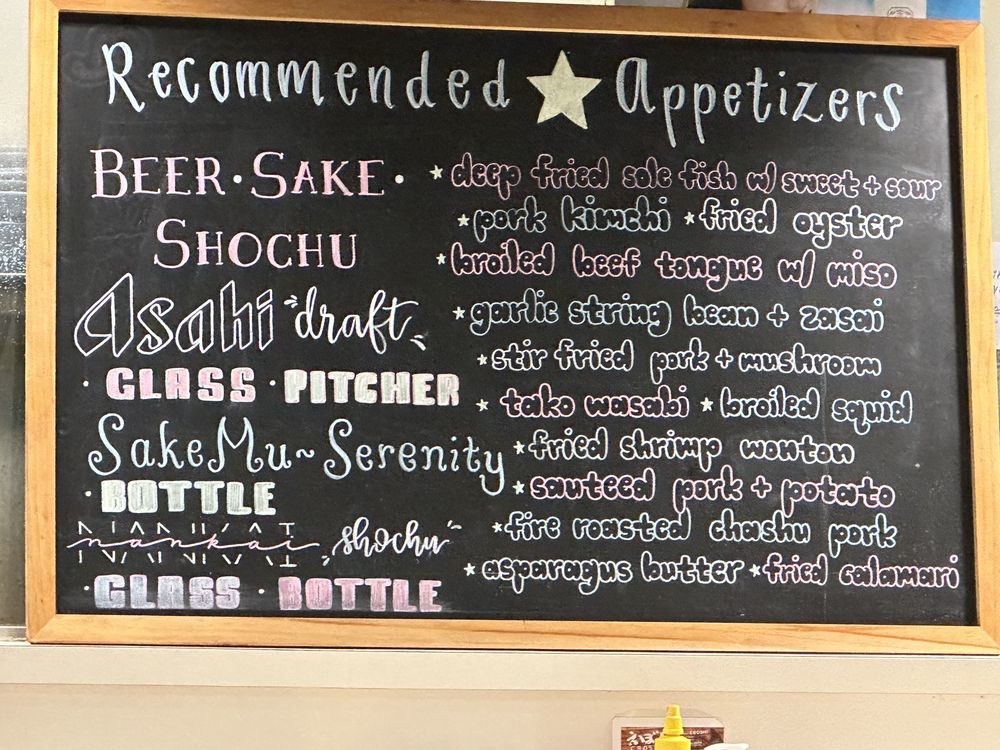 Recommended ★ Appetizers
BEER · SAKE ·
SHOCHU
Asahi draft
· GLASS · PITCHER
SakeMu ~ Serenity
· BOTTLE
NANKAI
nankai shochu
· GLASS · BOTTLE
★ deep fried sole fish w/ sweet + sour
★ pork kimchi ★ fried oyster
★ broiled beef tongue w/ miso
★ garlic string bean + zasai
★ stir fried pork + mushroom
★ tako wasabi ★ broiled squid
★ fried shrimp wonton
★ sauteed pork + potato
★ fire roasted chashu pork
★ asparagus butter ★ fried calamari